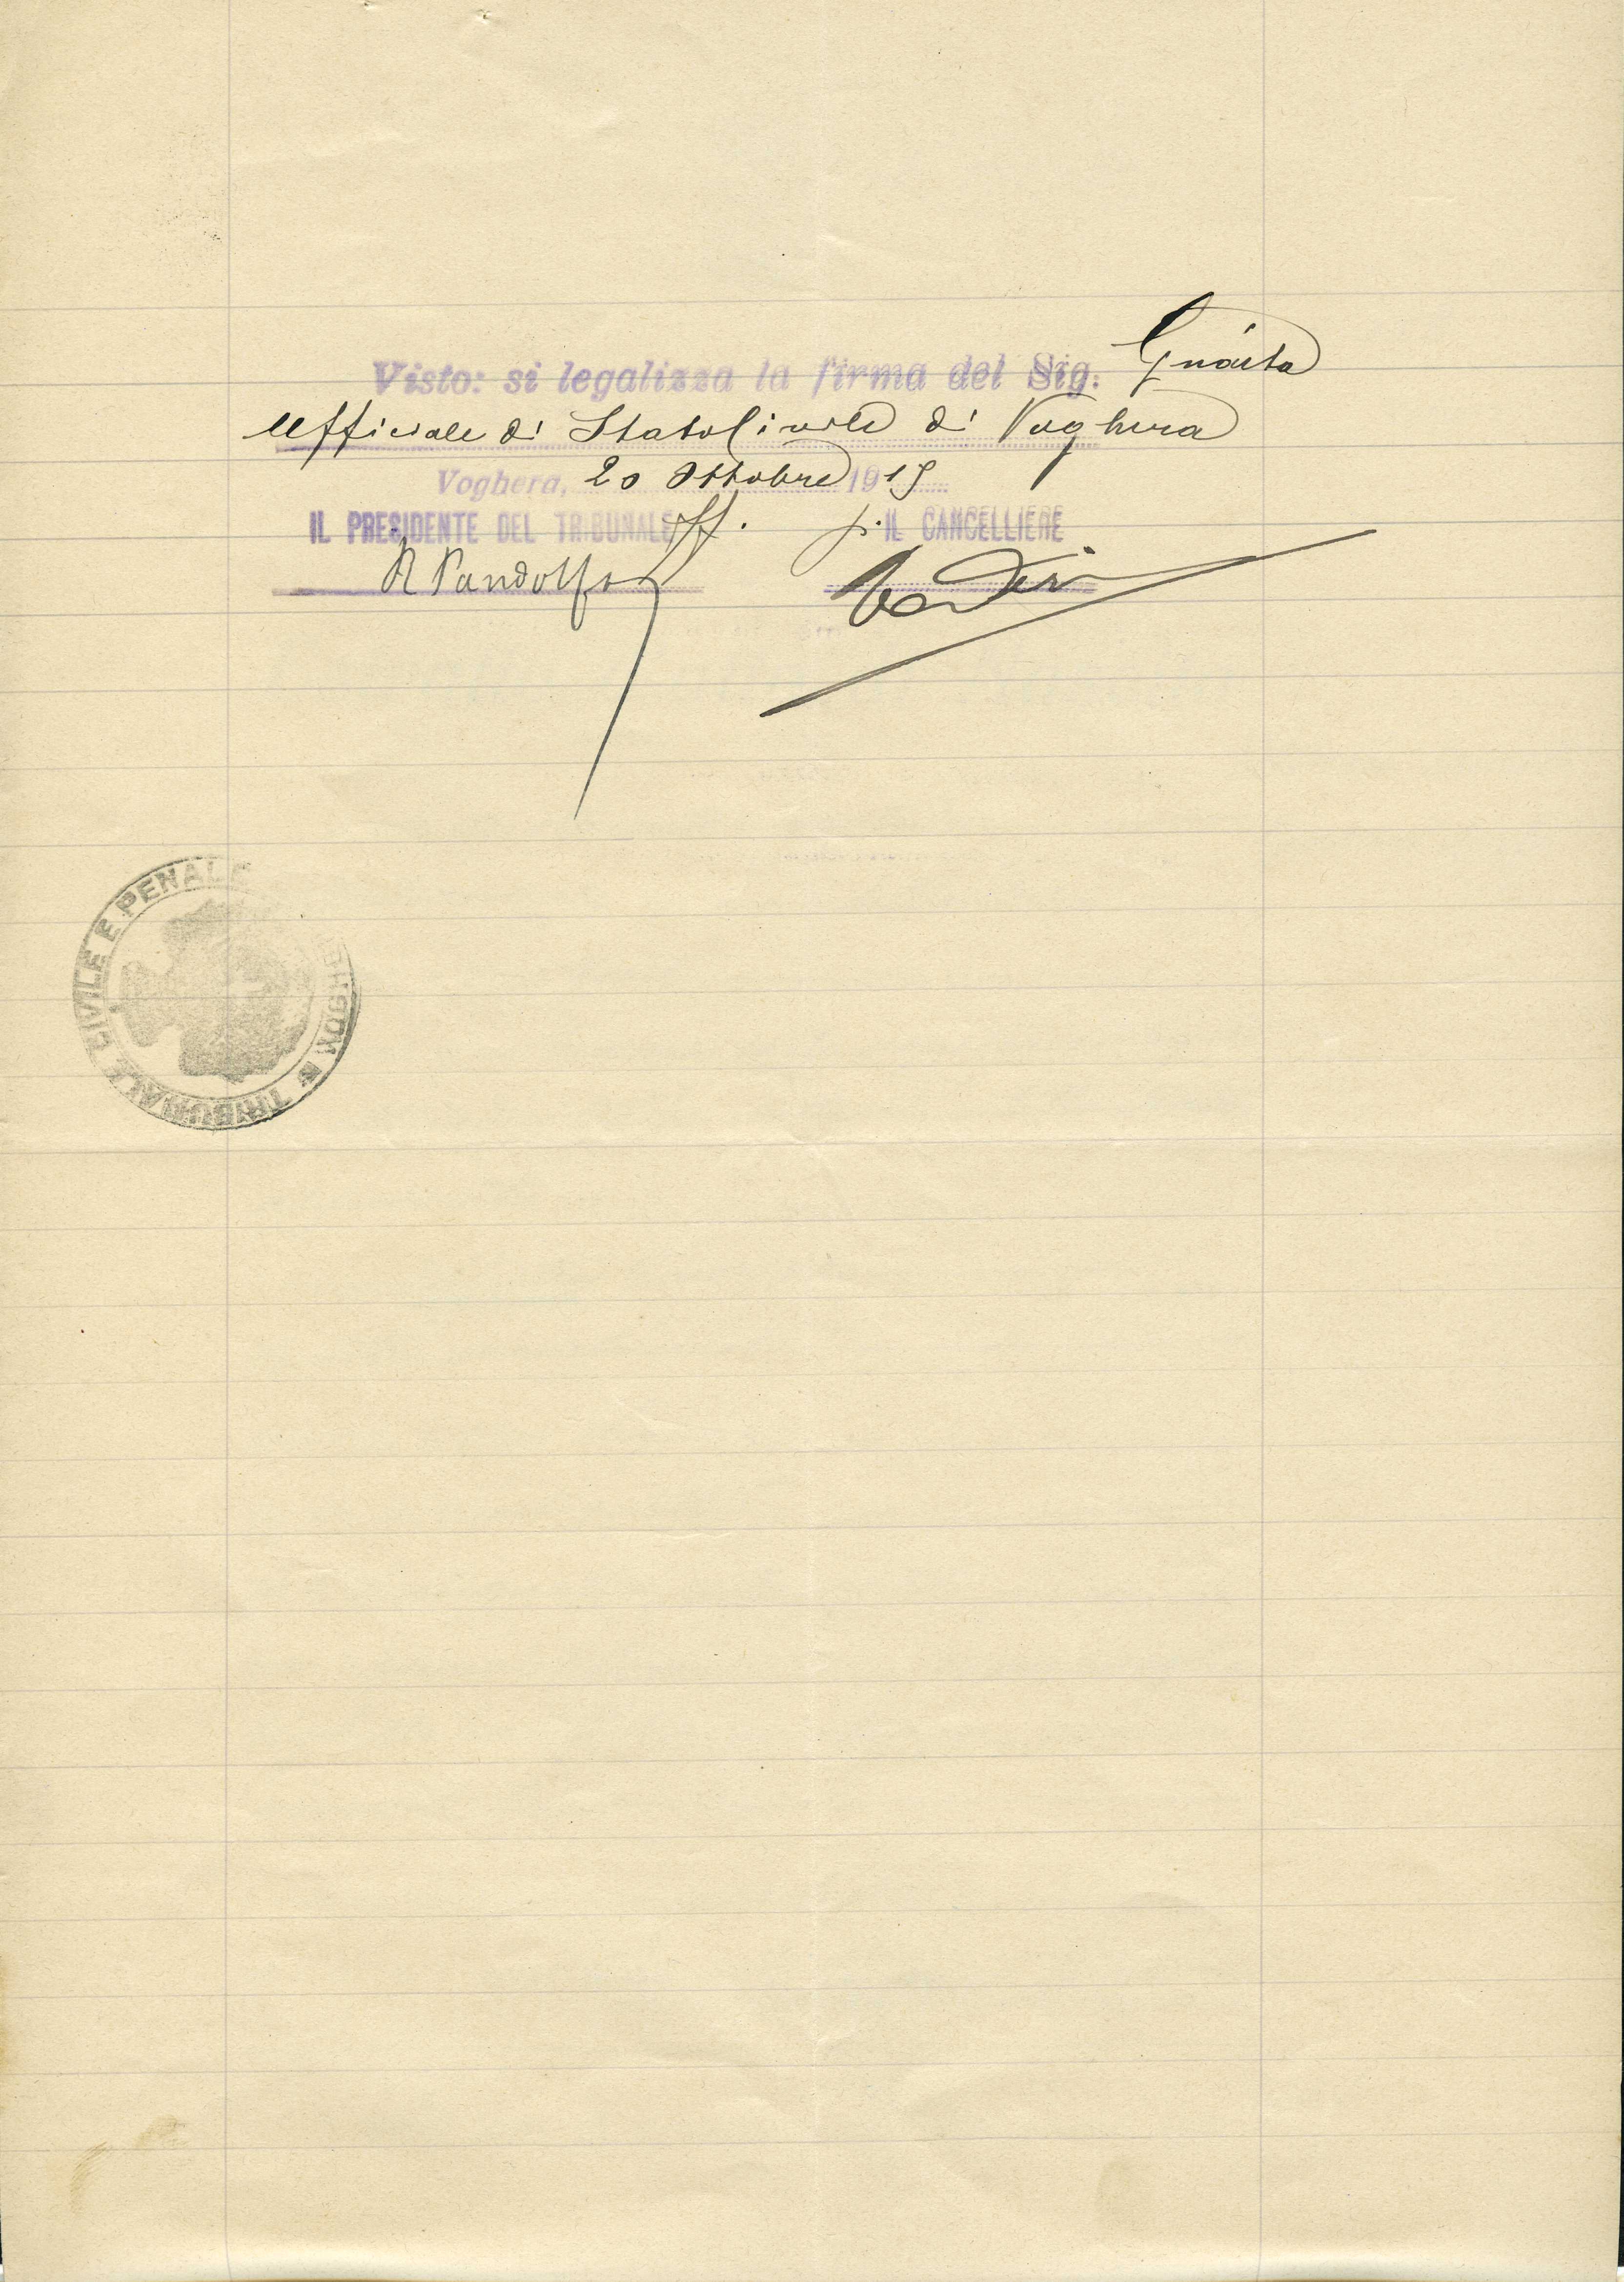 Visto: si legalizza la firma del Sig.
Ufficiale di Stato Civile di Voghera
Voghera, 20 Ottobre 1919
IL PRESIDENTE DEL TRIBUNALE ff. p. IL CANCELLIERE
R Pandolfo
TRIBUNALE CIVILE E PENALE